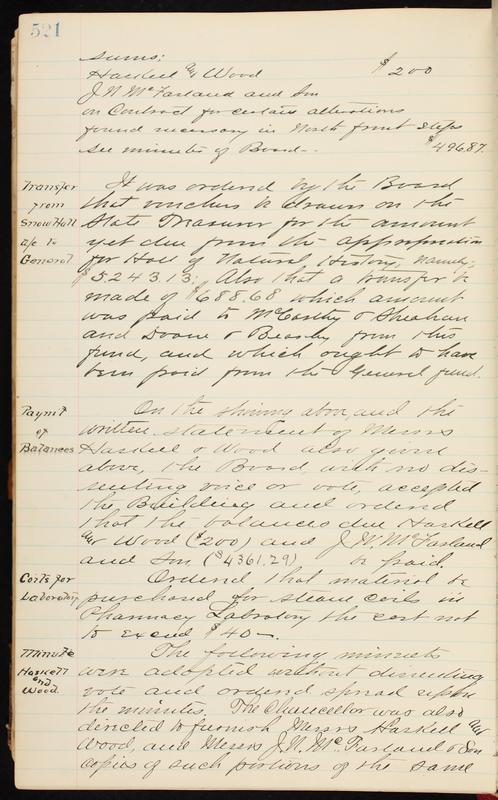 521
sums;
Haskell and Wood $200
J.N. McFarland and Son
on Contract for certain alterations
found necessary in North front steps
See minutes of Board-. $496.87.
Transfer
from
Snow Hall
a/c to
General
It was ordered by the Board
that vouchers be drawn on the
State Treasurer for the amount
yet due from the appropriation
for Hall of Natural History, namely;
$5243.13; Also that a transfer be
made of $688.68 which amount
was paid to McCarthy & Sheahan
and Doane & from this
fund, and which ought to have
been paid from the General fund.
Paymt
of
Balances
On the showing above and the
written statement of Messrs
Haskell & Wood also given
above, the Board, with no dis-
senting voice or vote, accepted
the Building and ordered
that the balances due Haskell
and Wood ($200) and J.N. McFarland
and Son ($4361.29) be paid.
Costs for
Laboratory
Ordered that material be
purchased for steam coils in
Pharmacy Labratory the cost not
to exceed $40-.
Minute
Haskell
and
Wood.
The following minutes
were adopted without dissenting
vote and ordered spread upon
the minutes. The Chancellor was also
directed to furnish Messrs Haskell and
Wood, and Messrs J.N. McFarland & Son
copies of such portions of the same